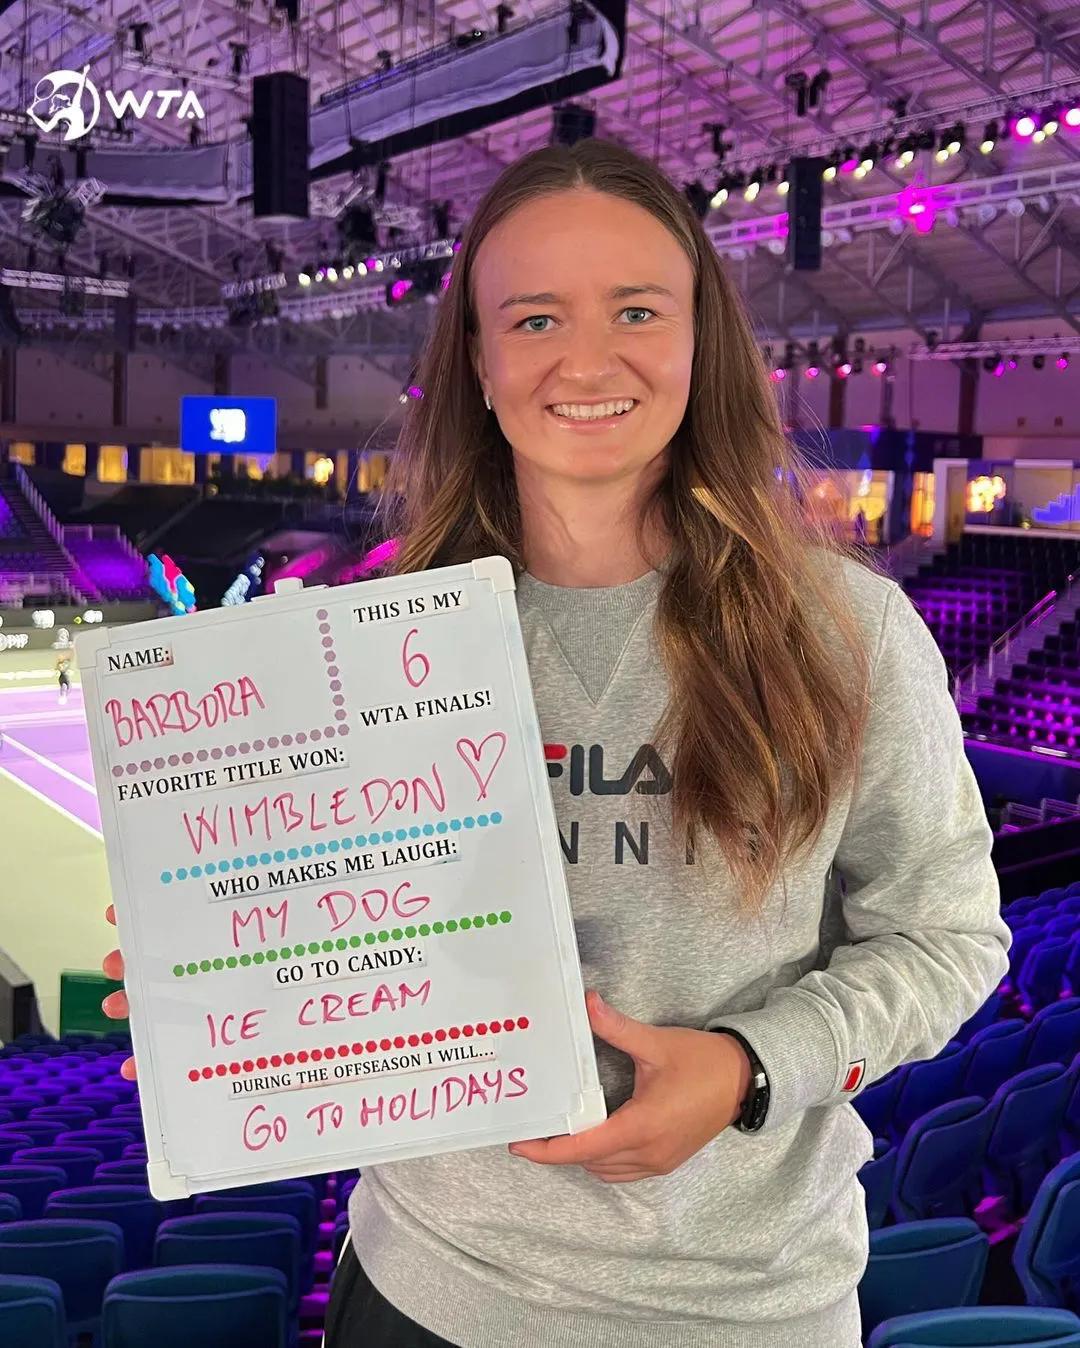 WTA
NAME:
BARBORA
THIS IS MY
6
WTA FINALS!
FAVORITE TITLE WON:
WIMBLEDON
WHO MAKES ME LAUGH:
MY DOG
GO TO CANDY:
ICE CREAM
DURING THE OFFSEASON I WILL...
GO TO HOLIDAYS
FILA
NNIS